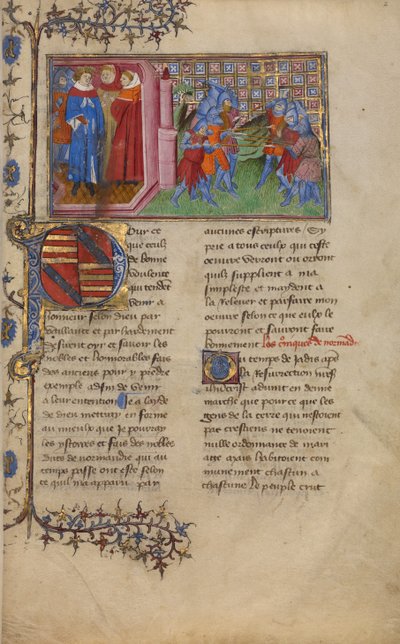 Pour ce
que ceulx
de bonne
voulente
qui tendent
venir a
honneur selon dieu par
vaillante et par hardement
desirent oyr et savoir les
nobles et honnorables fais
des anciens pour y prendre
exemple adfin de venir
a leur entention Je a layde
de dieu mettray en forme
au mieulx que je pourray
les ystores et fais des nobles
Ducs de normandie qui au
temps passe ont este selon
ce quil ma apparu par
aucunes escriptures Sy
prie a tous ceulx qui ceste
oeuvre verront ou orront
quilz supplient a ma
simplesse et maydent a
la relever et parfaire mon
oeuvre selon ce que eulx le
pourront et sauront faire
bonnement les croniques de normandie
Ou temps de jadis apres
la Resurrection
advint en denne
marche que pour ce que les
gens de la terre qui nestoient
pas crestiens ne tenoient
nulle ordonnance de mari
aige mais habitoient com
munement chascun a
chascune Le peuple crut